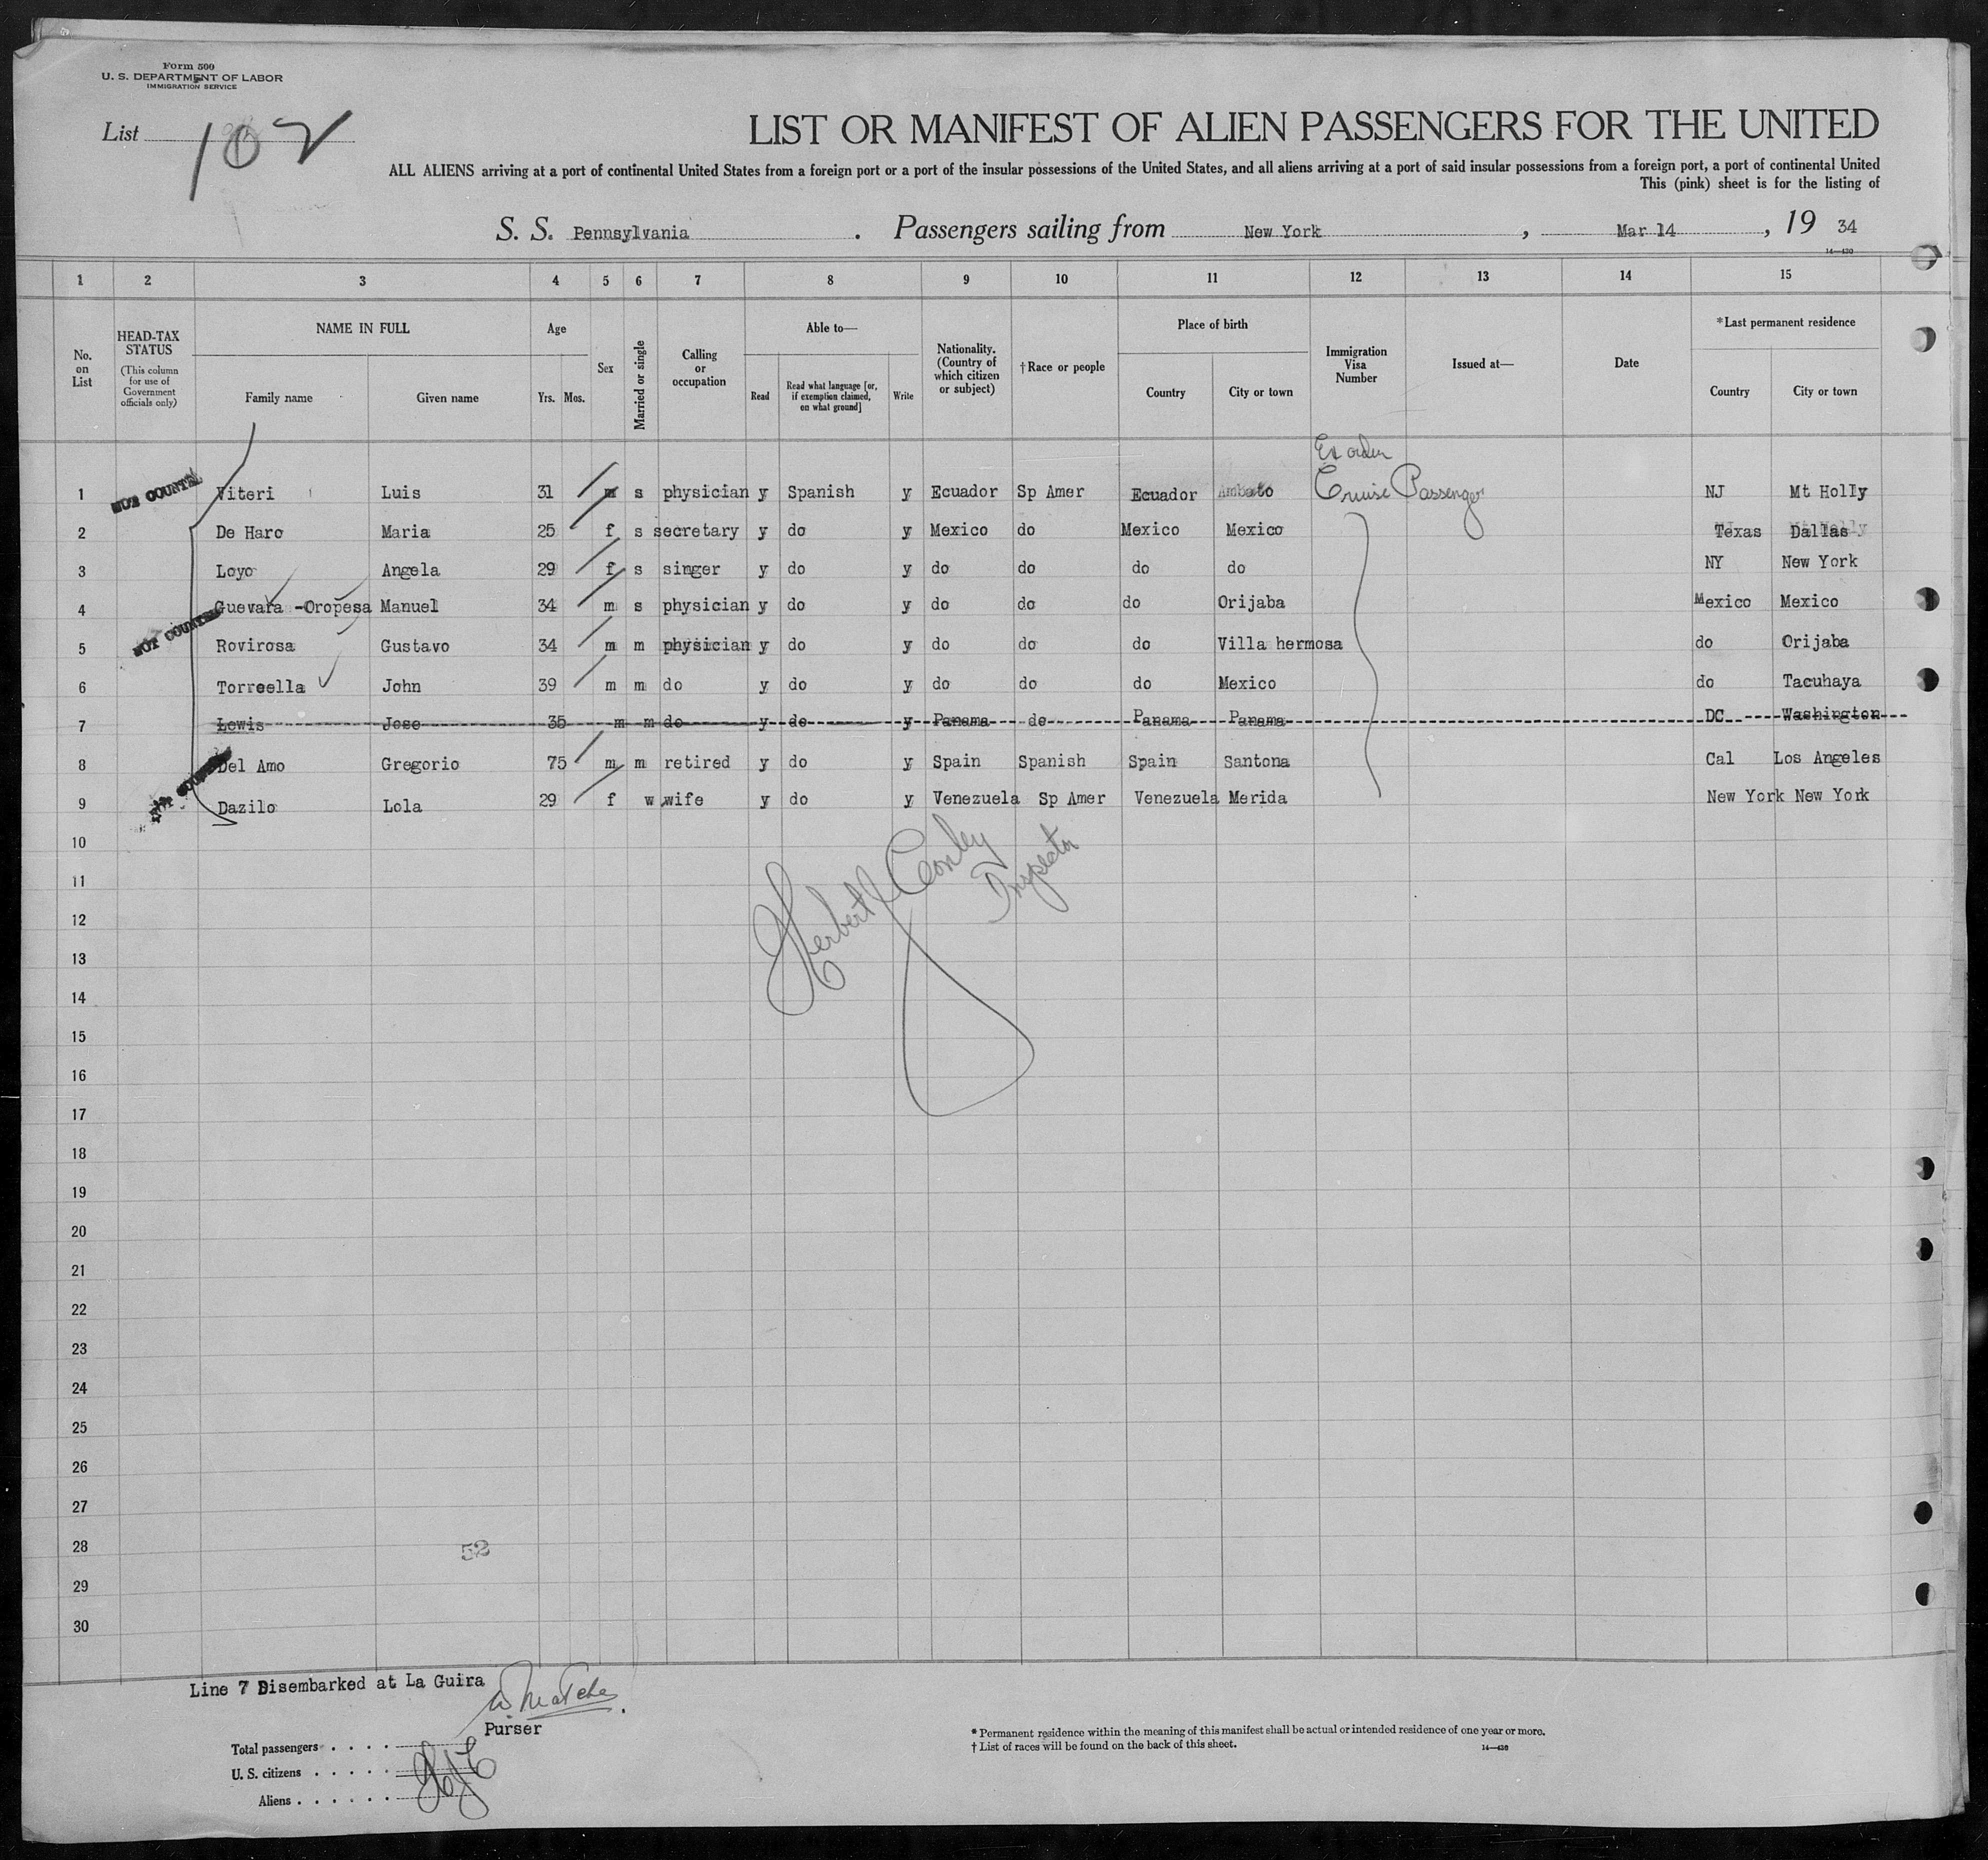 Form 500
U. S. DEPARTMENT OF LABOR
IMMIGRATION SERVICE
List 102
LIST OR MANIFEST OF ALIEN PASSENGERS FOR THE UNITED
ALL ALIENS arriving at a port of continental United States from a foreign port or a port of the insular possessions of the United States, and all aliens arriving at a port of said insular possessions from a foreign port, a port of continental United
This (pink) sheet is for the listing of
S. S. Pennsylvania . Passengers sailing from New York , Mar 14 , 19 34
14—430
1 2 3 4 5 6 7 8 9 10 11 12 13 14 15
No. on List
HEAD-TAX STATUS
(This column for use of Government officials only)
NAME IN FULL
Family name Given name
Age
Yrs. Mos.
Sex
Married or single
Calling or occupation
Able to—
Read
Read what language [or, if exemption claimed, on what ground]
Write
Nationality. (Country of which citizen or subject)
†Race or people
Place of birth
Country City or town
Immigration Visa Number
Issued at—
Date
*Last permanent residence
Country City or town
Ex order
1 NOT COUNTED Viteri Luis 31 m s physician y Spanish y Ecuador Sp Amer Ecuador Ambato Cruise Passenger NJ Mt Holly
2 De Haro Maria 25 f s secretary y do y Mexico do Mexico Mexico Texas Dallas
3 Loyo Angela 29 f s singer y do y do do do do NY New York
4 Guevara -Oropesa Manuel 34 m s physician y do y do do do Orijaba Mexico Mexico
5 NOT COUNTED Rovirosa Gustavo 34 m m physician y do y do do do Villa hermosa do Orijaba
6 Torreella John 39 m m do y do y do do do Mexico do Tacuhaya
7 Lewis Jose 35 m m do y do y Panama do Panama Panama DC Washington
8 Del Amo Gregorio 75 m m retired y do y Spain Spanish Spain Santona Cal Los Angeles
9 NOT COUNTED Dazilo Lola 29 f w wife y do y Venezuela Sp Amer Venezuela Merida New York New York
10
11
12
13
14
15
16
17
18
19
20
21
22
23
24
25
26
27
28
29
30
Herbert J Conley
Inspector
52
Line 7 Disembarked at La Guira
Purser
Total passengers
U. S. citizens
Aliens
* Permanent residence within the meaning of this manifest shall be actual or intended residence of one year or more.
† List of races will be found on the back of this sheet.
14—430